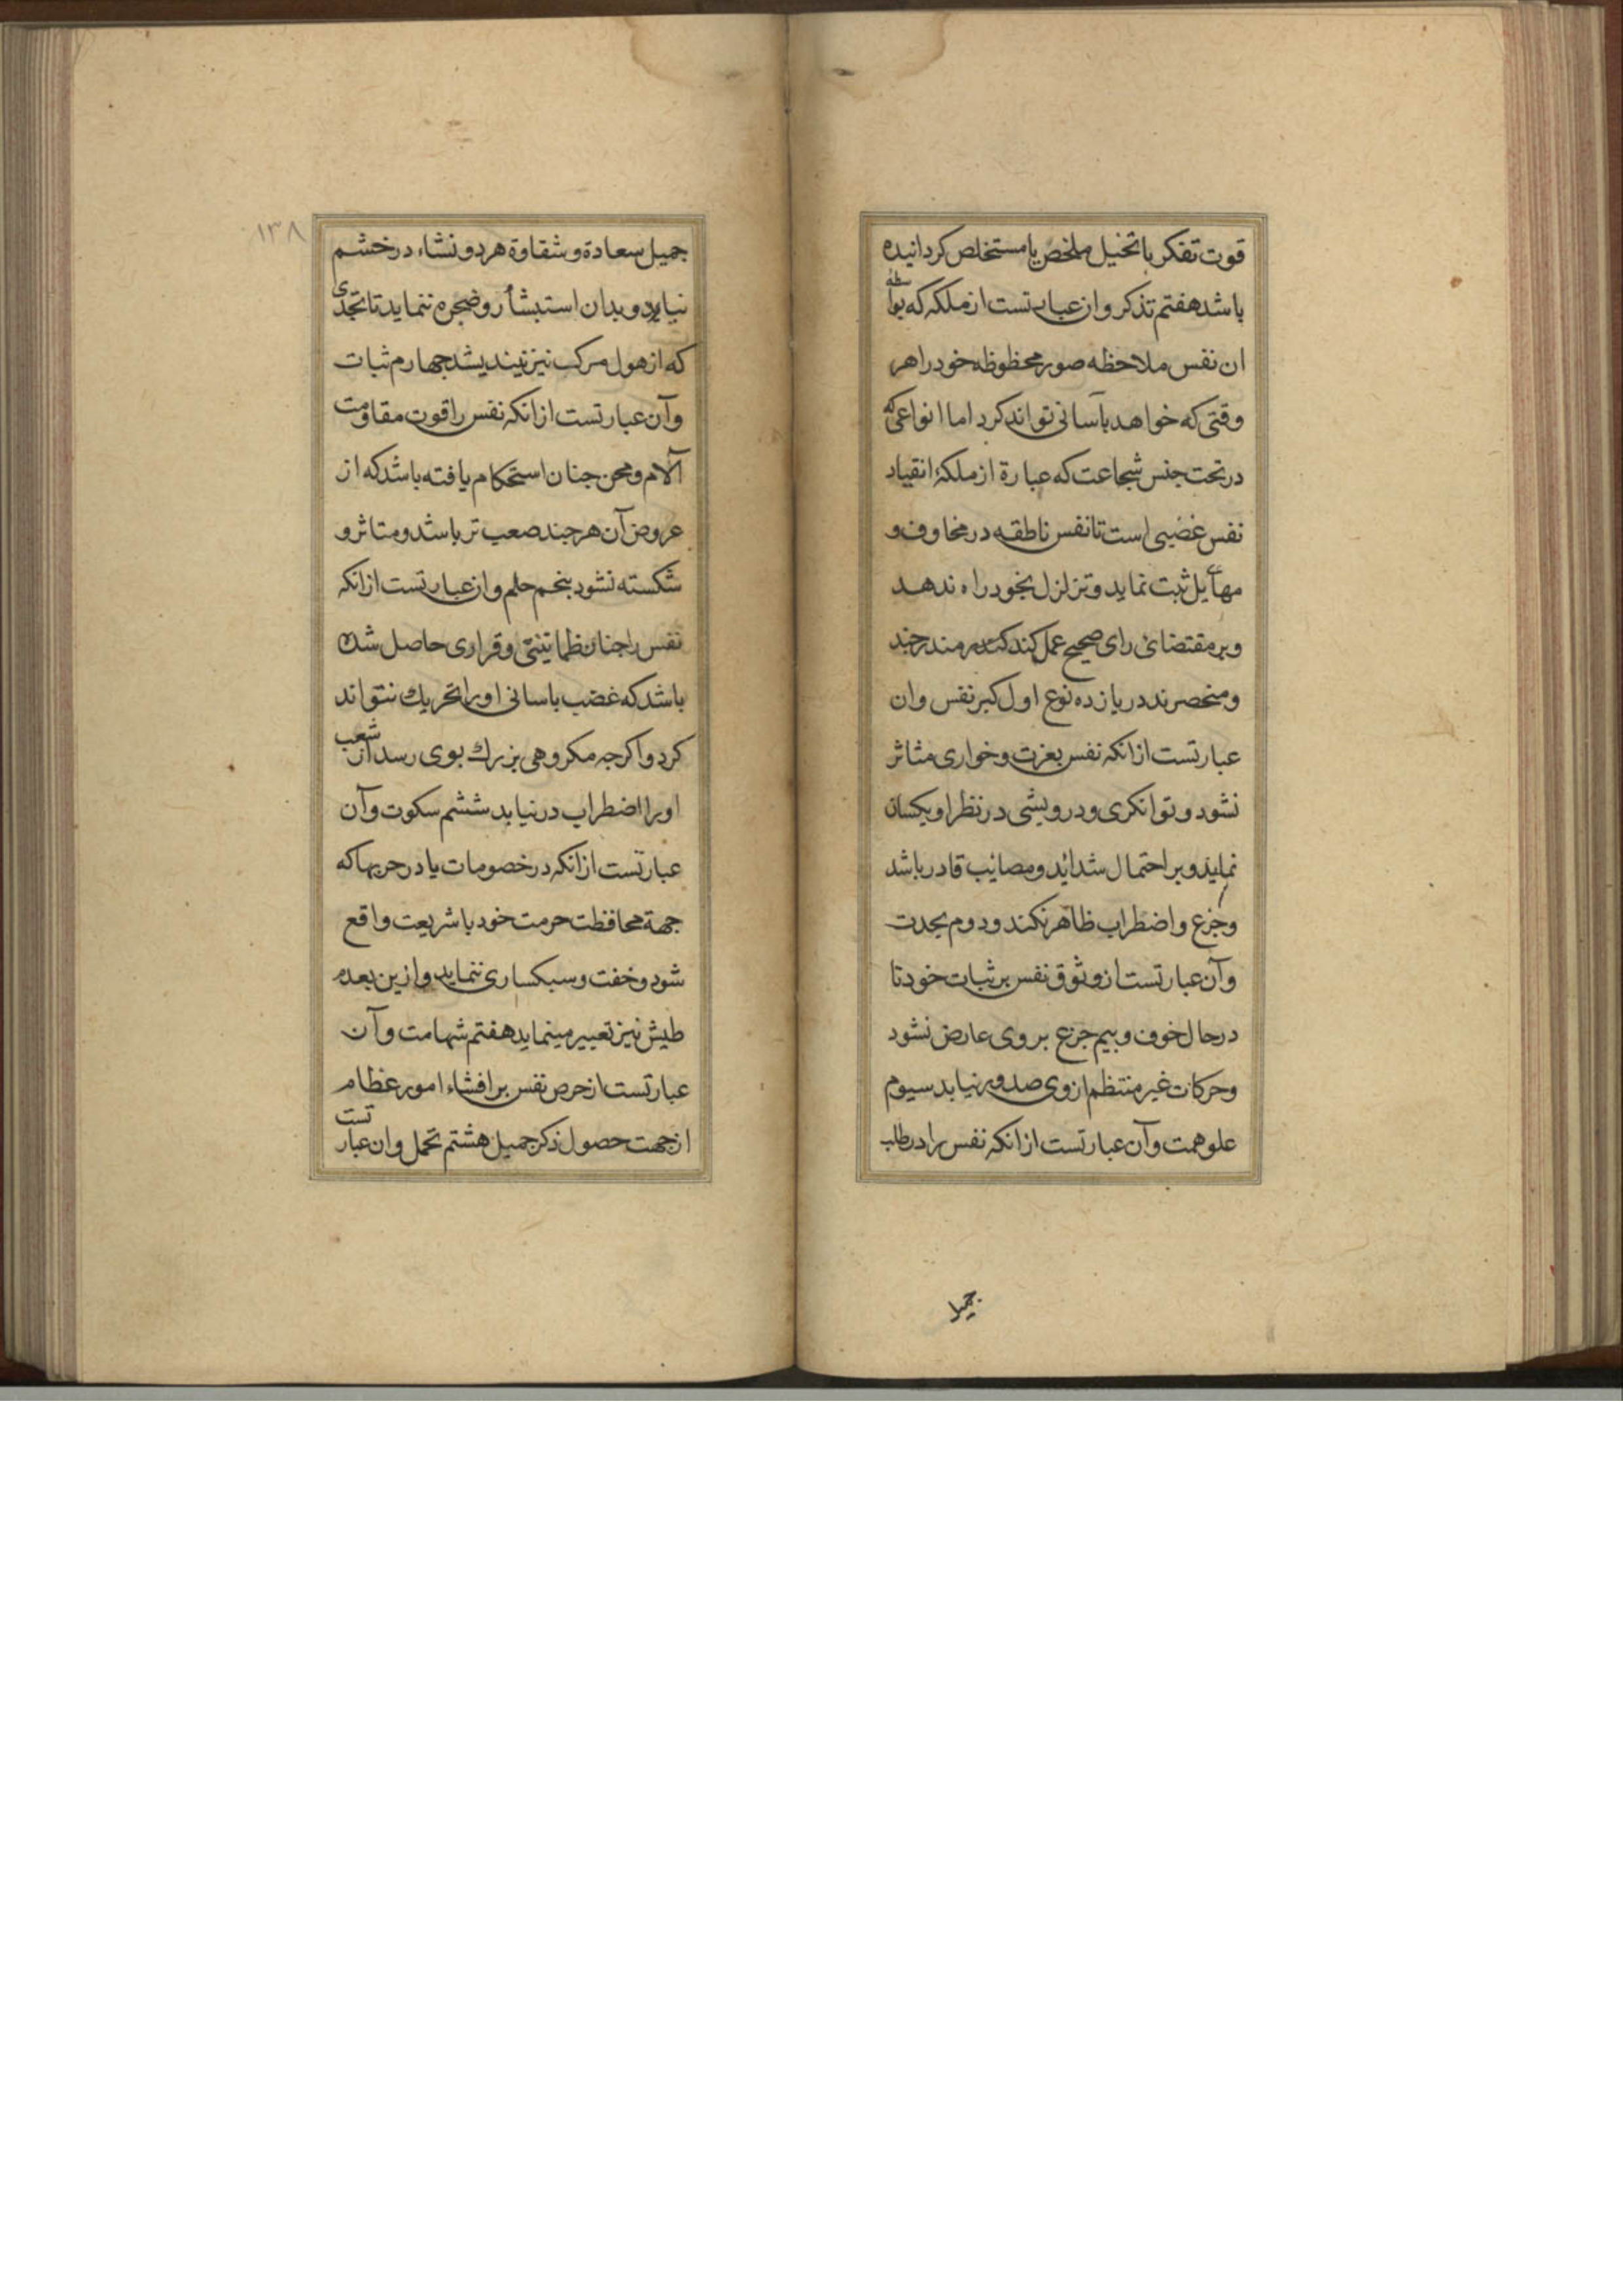 قوت تفکر یا تخیل ملخص یا مستخلص کردانیده
باشد هفتم تذکر و ان عبارتست از ملکه که بواسطه
ان نفس ملاحظه صور محظوظه خود را هر
وقتی که خواهد بآسانی تواند کرد اما انواعی که
در تحت جنس شجاعت که عبارة از ملکهٔ انقیاد
نفس غضبی است تا نفس ناطقه در مخاوف و
مهآیل ثبت نماید و تزلزل بخود راه ندهد
و بر مقتضائ رای صحیح عمل کند
و منحصرند در یازده نوع اول کبر نفس و ان
عبارتست از انکه نفس بعزت و خواری متاثر
نشود و توانکری و درویشی در نظر او یکسان
نماید و بر احتمال شداید و مصایب قادر باشد
و جزع و اضطراب ظاهر نکند و دوم نجدت
و آن عبارتست از وثوق نفس بر ثبات خود تا
در حال خوف و بیم جزع بر وی عارض نشود
و حرکات غیر منتظم از وی صدور نیابد سیوم
علو همت و آن عبارتست از انکه نفس را در طلب
جمیل
۱۳۸
جمیل سعادة و شقاوة هر دو نشاء در خشم
نیاید و بدان استبشار و ضجره ننماید تا بحدی
که از هول مرک نیز نیندیشد جهارم ثبات
و آن عبارتست از انکه نفس را قوت مقاومت
آلام و محن جنان استحکام یافته باشد که از
عروض آن هر جند صعب تر باشد و متاثر و
شکسته نشود بنجم حلم و ان عبارتست از انکه
نفس را جنان طمانینتی و قراری حاصل شده
باشد که غضب باسانی او را تحریک نتواند
کرد و اکرجه مکروهی بزرک بوی رسد از شعب
او را اضطراب در نیابد ششم سکوت و آن
عبارتست از انکه در خصومات یا در حربها که
جهة محافظت حرمت خود با شریعت واقع
شود و خفت و سبکساری ننماید و ازین بعدم
طیش نیز تعبیر مینماید هفتم شهامت و آن
عبارتست از حرص نفس بر افشاء امور عظام
از جهت حصول ذکر جمیل هشتم تحمل و ان عبارتست